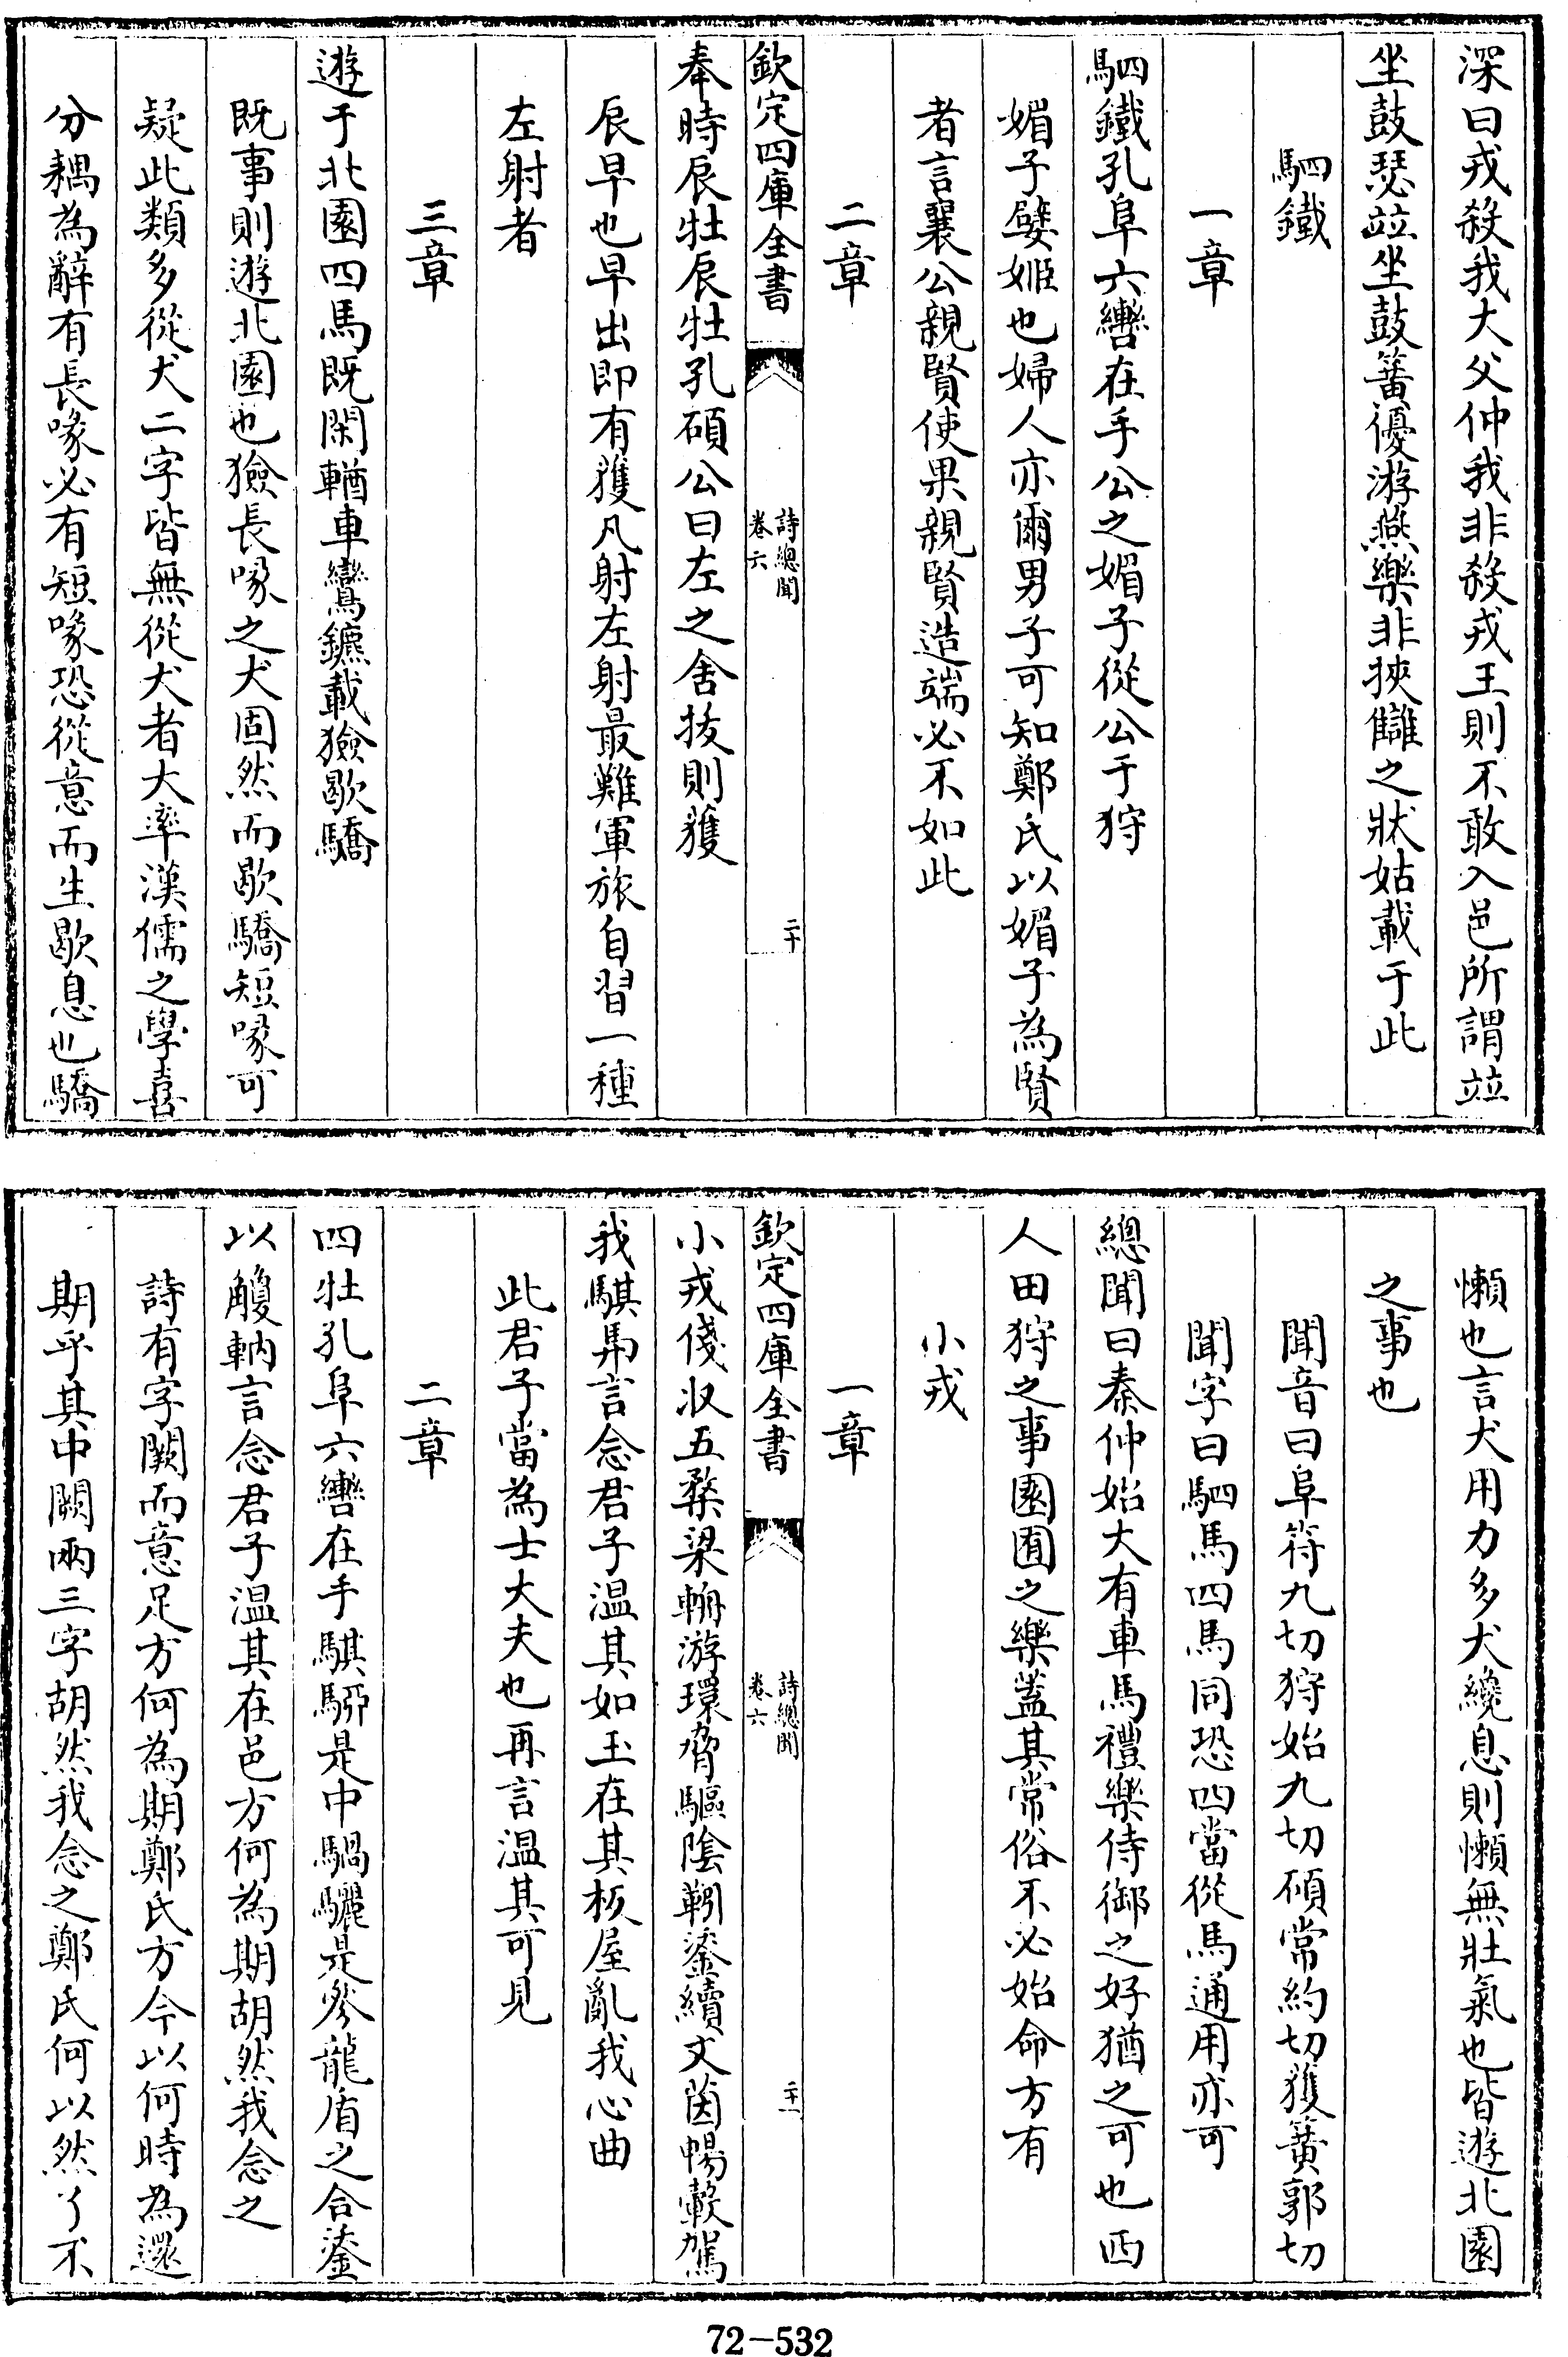 深曰戎殺我大父仲我非殺戎王則不敢入邑所謂竝
坐鼓瑟竝坐鼓簧優游燕樂非挾讎之狀姑載于此
駟鐵
一章
駟鐵孔阜六轡在手公之媚子從公于狩
媚子嬖姬也婦人亦爾男子可知鄭氏以媚子為賢
者言襄公親賢使果親賢造端必不如此
二章
欽定四庫全書
詩總聞
卷六
二十
奉時辰牡辰牡孔碩公曰左之舍拔則獲
辰早也早出即有獲凡射左射最難軍旅自習一種
左射者
三章
遊于北園四馬既閑輶車鸞鑣載獫歇驕
既事則遊北園也獫長喙之犬固然而歇驕短喙可
疑此類多從犬二字皆無從犬者大率漢儒之學喜
分耦為辭有長喙必有短喙恐從意而生歇息也驕
懶也言犬用力多犬纔息則懶無壯氣也皆遊北園
之事也
聞音曰阜符九切狩始九切碩常約切獲黄郭切
聞字曰駟馬四馬同恐四當從馬通用亦可
總聞曰秦仲始大有車馬禮樂侍御之好猶之可也西
人田狩之事園囿之樂蓋其常俗不必始命方有
小戎
一章
欽定四庫全書
詩總聞
卷六
二十一
小戎俴收五楘梁輈游環脅驅陰靷鋈續文茵暢轂駕
我騏馵言念君子温其如玉在其板屋亂我心曲
此君子當為士大夫也再言温其可見
二章
四牡孔阜六轡在手騏駵是中騧驪是參龍盾之合鋈
以觼軜言念君子温其在邑方何為期胡然我念之
詩有字闕而意足方何為期鄭氏方今以何時為還
期乎其中闕兩三字胡然我念之鄭氏何以然了不
72-532